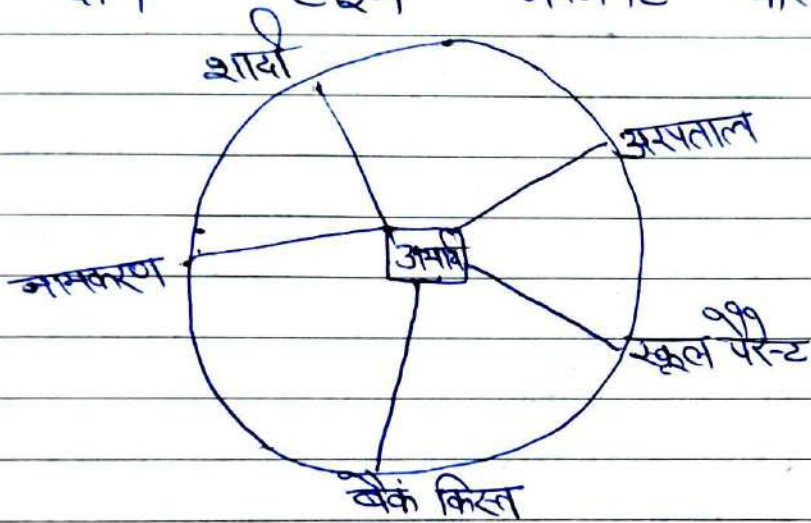 शादी
अस्पताल
नामकरण
स्कूल पैरेन्ट
बैंक किस्त